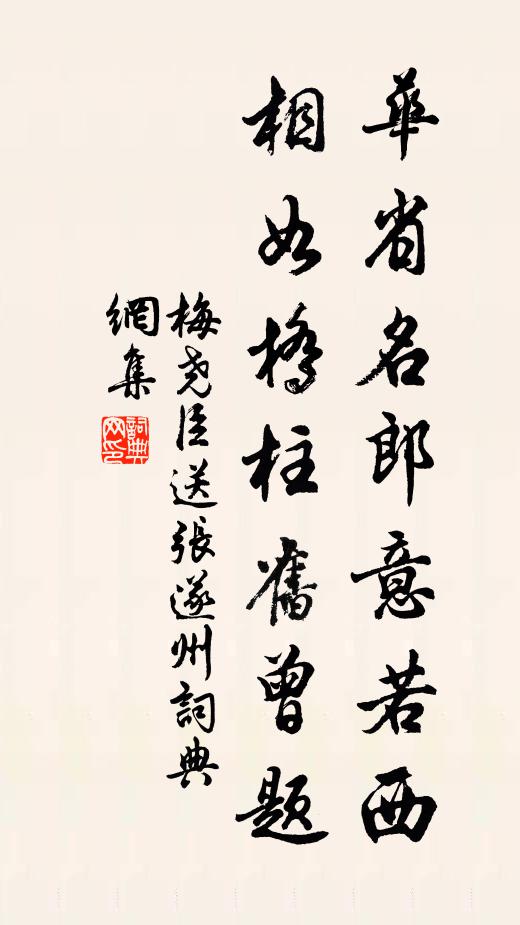 華省名郎意若西
相如橋柱舊曾題
梅堯臣送張遂州詞典
網集
詞典
网印